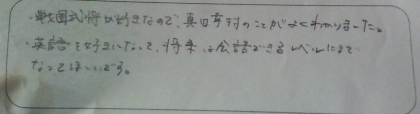 ・戦国武将が好きなので、真田幸村のことがよくわかりました。
・英語を好きになって、将来は会話できるレベルにまで
なってほしいです。